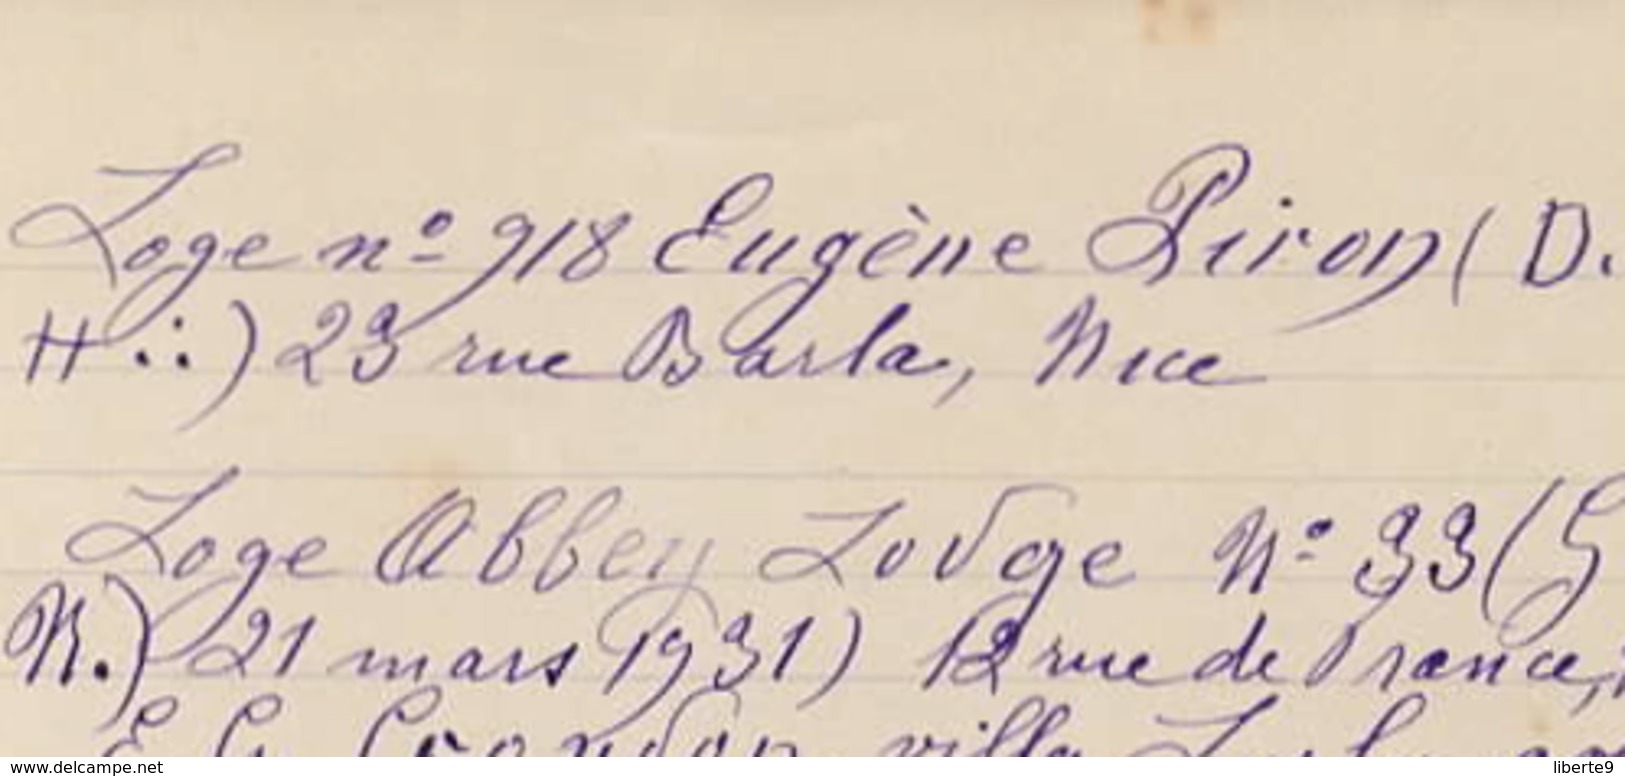 Loge nº 918 Eugène Piron ( D.
H ∴) 23 rue Barla, Nice
Loge Abbey Lodge Nº 33 ( G
N.) 21 mars 1931) 12 rue de France,
E. G. villa
www.delcampe.net
liberte9